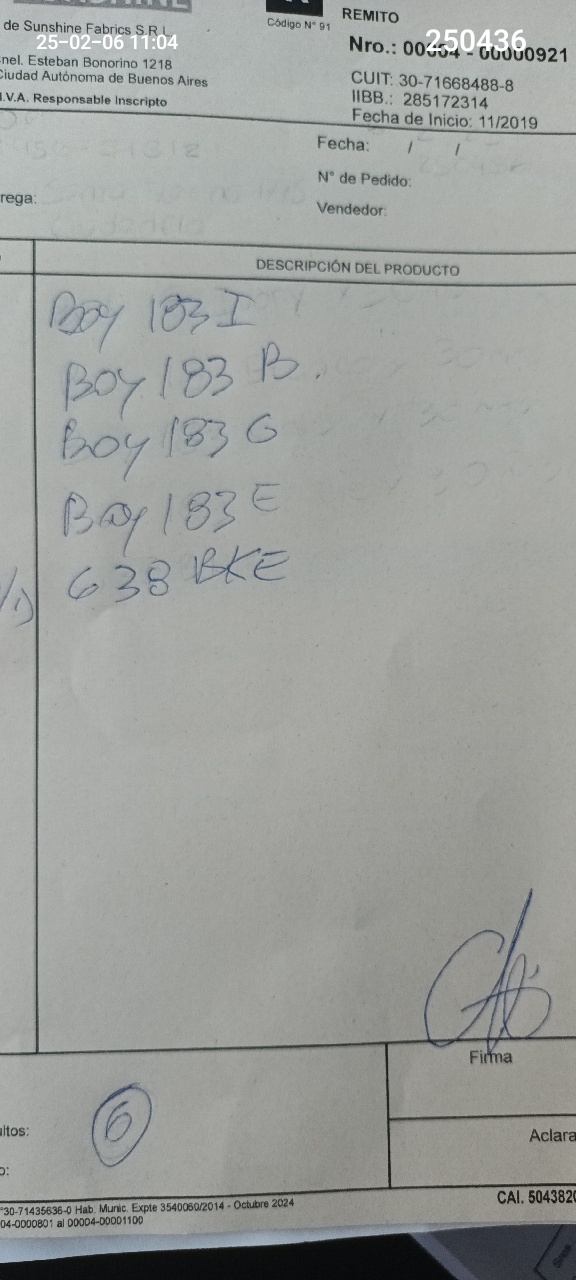 SUNSHINE
de Sunshine Fabrics S.R.L.
25-02-06 11:04
nel. Esteban Bonorino 1218
Ciudad Autónoma de Buenos Aires
I.V.A. Responsable Inscripto
Código N° 91
REMITO
250436
Nro.: 00004 - 00000921
CUIT: 30-71668488-8
IIBB.: 285172314
Fecha de Inicio: 11/2019
Fecha: / /
N° de Pedido:
rega:
Vendedor:
DESCRIPCIÓN DEL PRODUCTO
Boy 183 I
Boy 183 B.
Boy 183 G
Boy 183 E
638 BKE
Firma
6
ultos:
Aclara
o:
°30-71435636-0 Hab. Munic. Expte 3540060/2014 - Octubre 2024
04-0000801 al 00004-00001100
CAI. 5043820